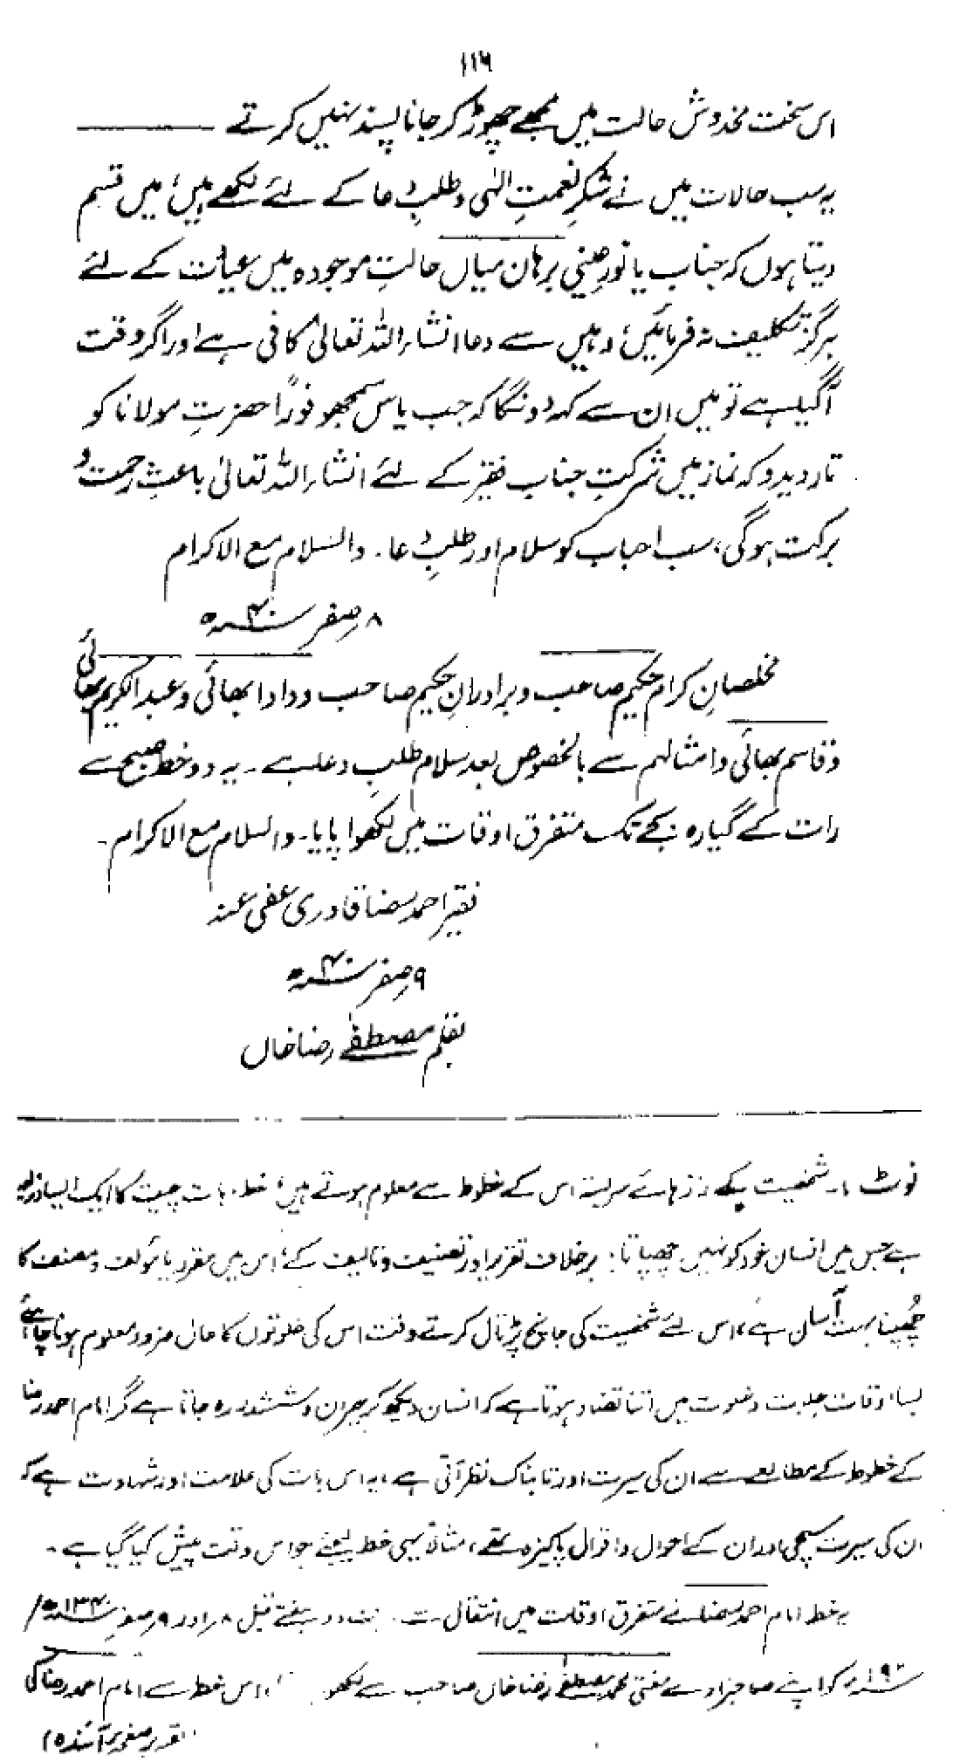 ۱۱۶
اس سخت مخدوش حالت میں مجھے چھوڑ کر جانا پسند نہیں کرتے ——
یہ سب حالات میں نے شکرِ نعمتِ الٰہی و طلبِ دعا کے لئے لکھے ہیں، میں قسم
دیتا ہوں کہ جناب یا نورِ عینی برہان میاں حالتِ موجودہ میں عیادت کے لئے
ہرگز تکلیف نہ فرمائیں، وہیں سے دعا انشاء اللہ تعالیٰ کافی ہے اور اگر وقت
آگیا ہے تو میں ان سے کہہ دونگا کہ جب یاس سمجھو فوراً حضرتِ مولانا کو
تار دیدو کہ نماز میں شرکتِ جناب فقیر کے لئے انشاء اللہ تعالیٰ باعثِ رحمت و
برکت ہوگی، سب احباب کو سلام اور طلبِ دعا۔ والسلام مع الاکرام
۸ صفر سنہ ۴۰ھ
مخلصانِ کرام حکیم صاحب و برادرانِ حکیم صاحب و دادا بھائی و عبدالکریم بھائی
و قاسم بھائی و امثالہم سے بالخصوص بعد سلام طلبِ دعا ہے۔ یہ دو خط صبح سے
رات کے گیارہ بجے تک متفرق اوقات میں لکھوا پایا۔ والسلام مع الاکرام۔
فقیر احمد رضا قادری عفی عنہ
۹ صفر سنہ ۴۰ھ
بقلم مصطفےٰ رضا خاں
نوٹ :۔ شخصیت کے راز ہائے سربستہ اس کے خطوط سے معلوم ہوتے ہیں، خط بات چیت کا ایک ایسا ذریعہ
ہے جس میں انسان خود کو نہیں چھپاتا، برخلاف تقریر اور تصنیف و تالیف کے، اس میں مقرر یا مؤلف و مصنف کا
چُھپنا بہت آسان ہے، اس لئے شخصیت کی جانچ پڑتال کرتے وقت اس کی خلوتوں کا حال ضرور معلوم ہونا چاہئے
بسا اوقات جلوت و خلوت میں اتنا تضاد ہوتا ہے کہ انسان دیکھ کر حیران و ششدر رہ جاتا ہے مگر امام احمد رضا
کے خطوط کے مطالعے سے ان کی سیرت اور تابناک نظر آتی ہے، یہ اس بات کی علامت اور شہادت ہے کہ
ان کی سیرت سچی اور ان کے احوال و اقوال پاکیزہ تھے، مثلاً یہی خط لیجئے جو اس وقت پیش کیا گیا ہے۔
یہ خط امام احمد رضا نے متفرق اوقات میں انتقال سے دو ہفتے قبل ۸ اور ۹ صفر سنہ ۱۳۴۰ھ/
کو اپنے صاحبزادے مفتی محمد مصطفےٰ رضا خاں صاحب سے لکھو اس خط سے امام احمد رضا کی
صفحہ پر آئندہ)